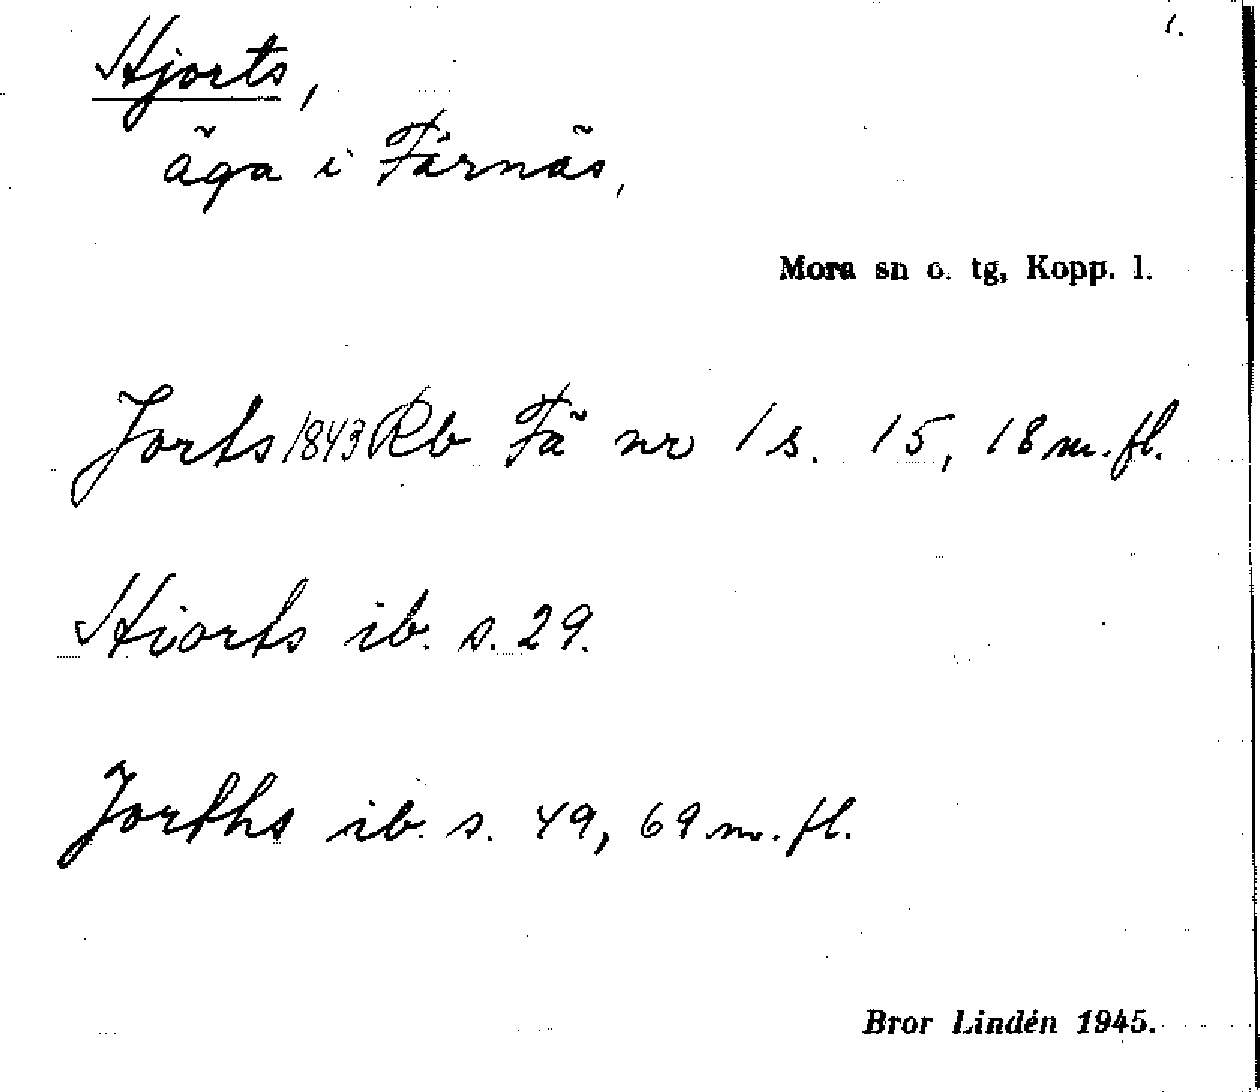 1.
Hjorts,
äga i Färnäs,
Mora sn o. tg, Kopp. l.
Jorts 1843 Rb Fä nr 1 s. 15, 18 m. fl.
Hiorts ib. s. 29.
Jorths ib. s. 49, 69 m. fl.
Bror Lindén 1945.